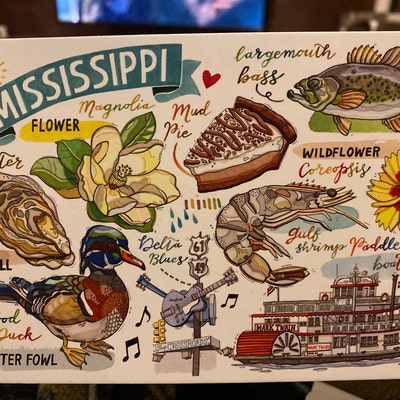 MISSISSIPPI
largemouth
bass
Magnolia
FLOWER
Mud
Pie
WILDFLOWER
Coreopsis
ter
LL
Delta
Blues
61
49
gulf
shrimp
Paddle
boat
ood
Duck
TER FOWL
CROSSROADS
MARK TWAIN
MARK TWAIN